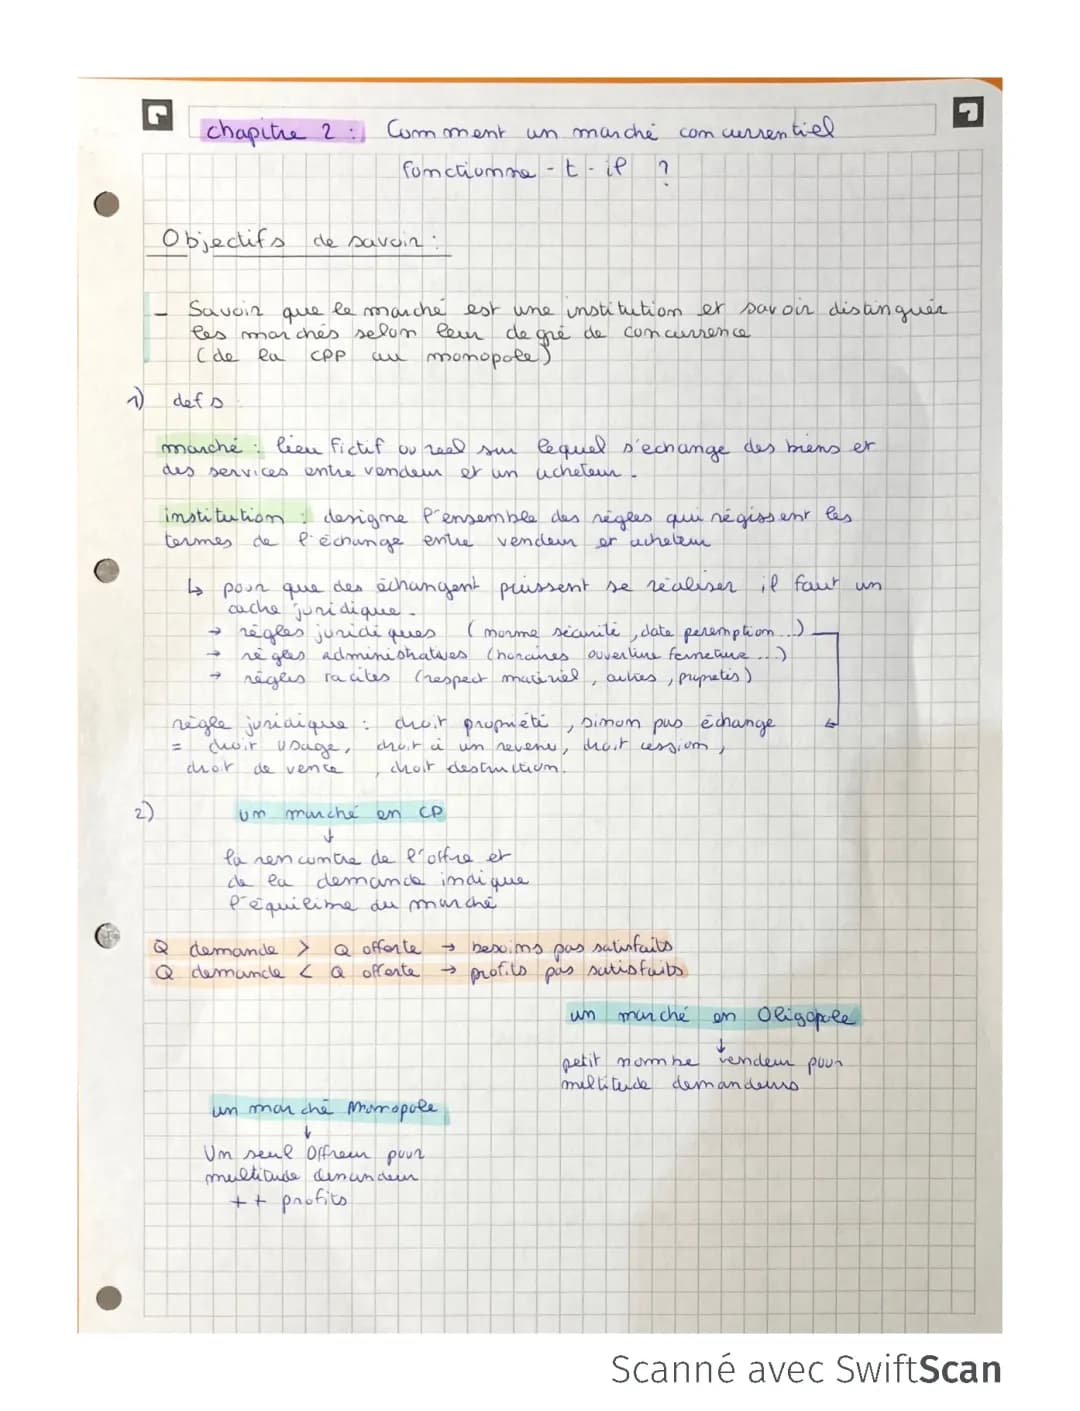 chapitre 2 : Comment un marché concurrentiel
fonctionne-t-il ?
Objectifs de savoir :
- Savoir que le marché est une institution et savoir distinguer
les marchés selon leur degré de concurrence
(de la CPP au monopole)
1) defs
marché : lieu fictif ou reel sur lequel s'echange des biens et
des services entre vendeur et un acheteur.
institution : designe l'ensemble des règles qui régissent les
termes de l'échange entre vendeur et acheteur
↳ pour que des échangent puissent se réaliser il faut un
cache juridique.
→ règles juridiques (norme sécurité, date peremption...)
→ règles administratives (horaires ouverture fermeture...)
→ règles tacites (respect matériel, autres, propretés)
règle juridique : droit propriété, sinon pas échange
= droit usage, droit à un revenu, droit cession,
droit de vente, droit destruction.
2) un marché en CP
↓
la rencontre de l'offre et
de la demande indique
l'équilibre du marché
Q demande > Q offerte → besoins pas satisfaits
Q demande < Q offerte → profits pas satisfaits
un marché en Oligopole
↓
petit nombre vendeur pour
multitude demandeurs
un marché Monopole
↓
Un seul Offreur pour
multitude demandeur
++ profits
Scanné avec SwiftScan